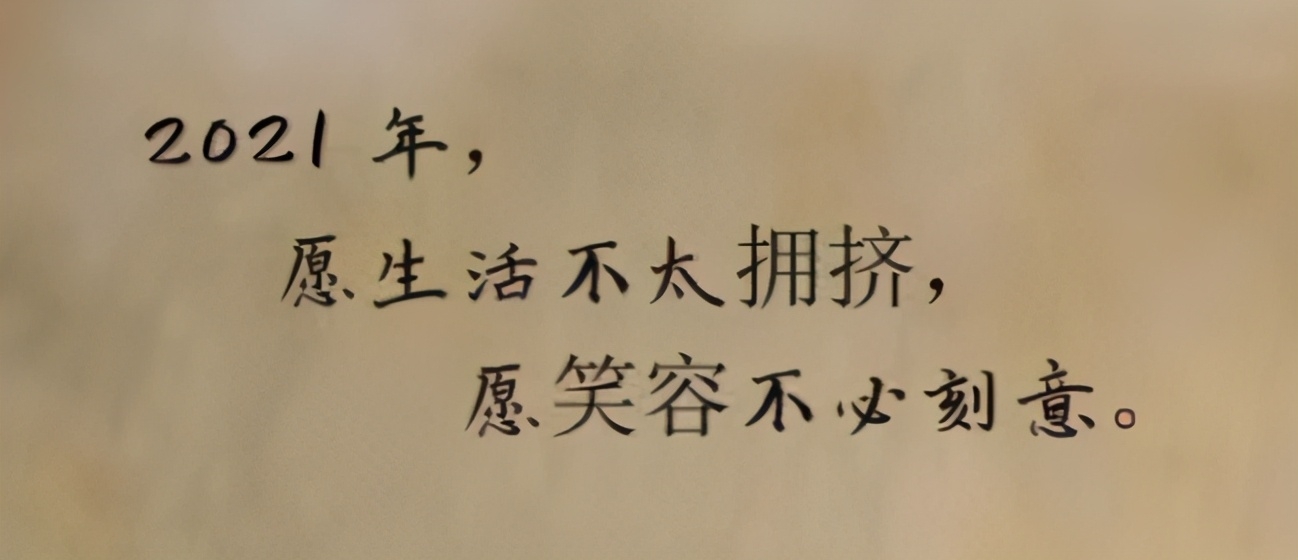 2021 年，
愿生活不太拥挤，
愿笑容不必刻意。